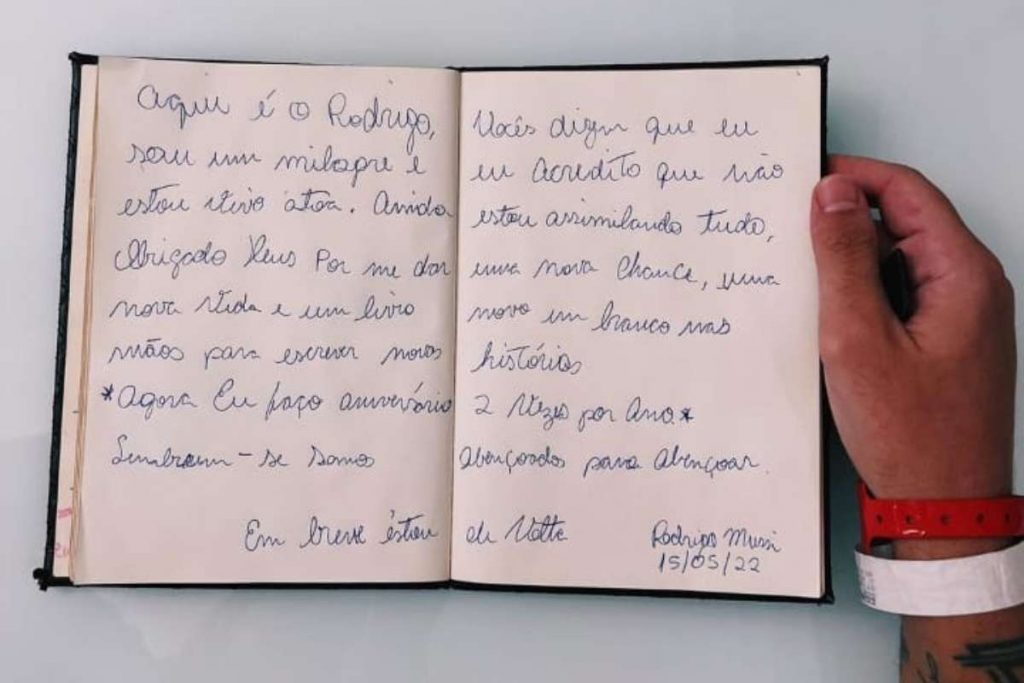 Aqui é o Rodrigo, Vocês dizem que eu
sou um milagre e eu Acredito que não
estou vivo atoa. Ainda estou assimilando tudo,
Obrigado Deus Por me dar uma nova chance, uma
nova vida e um livro novo em branco nas
mãos para escrever novas histórias
*Agora Eu faço aniversário 2 Vezes por Ano*
Lembrem-se somos abençoados para abençoar.
Em breve estou de Volta
Rodrigo Mussi
15/05/22